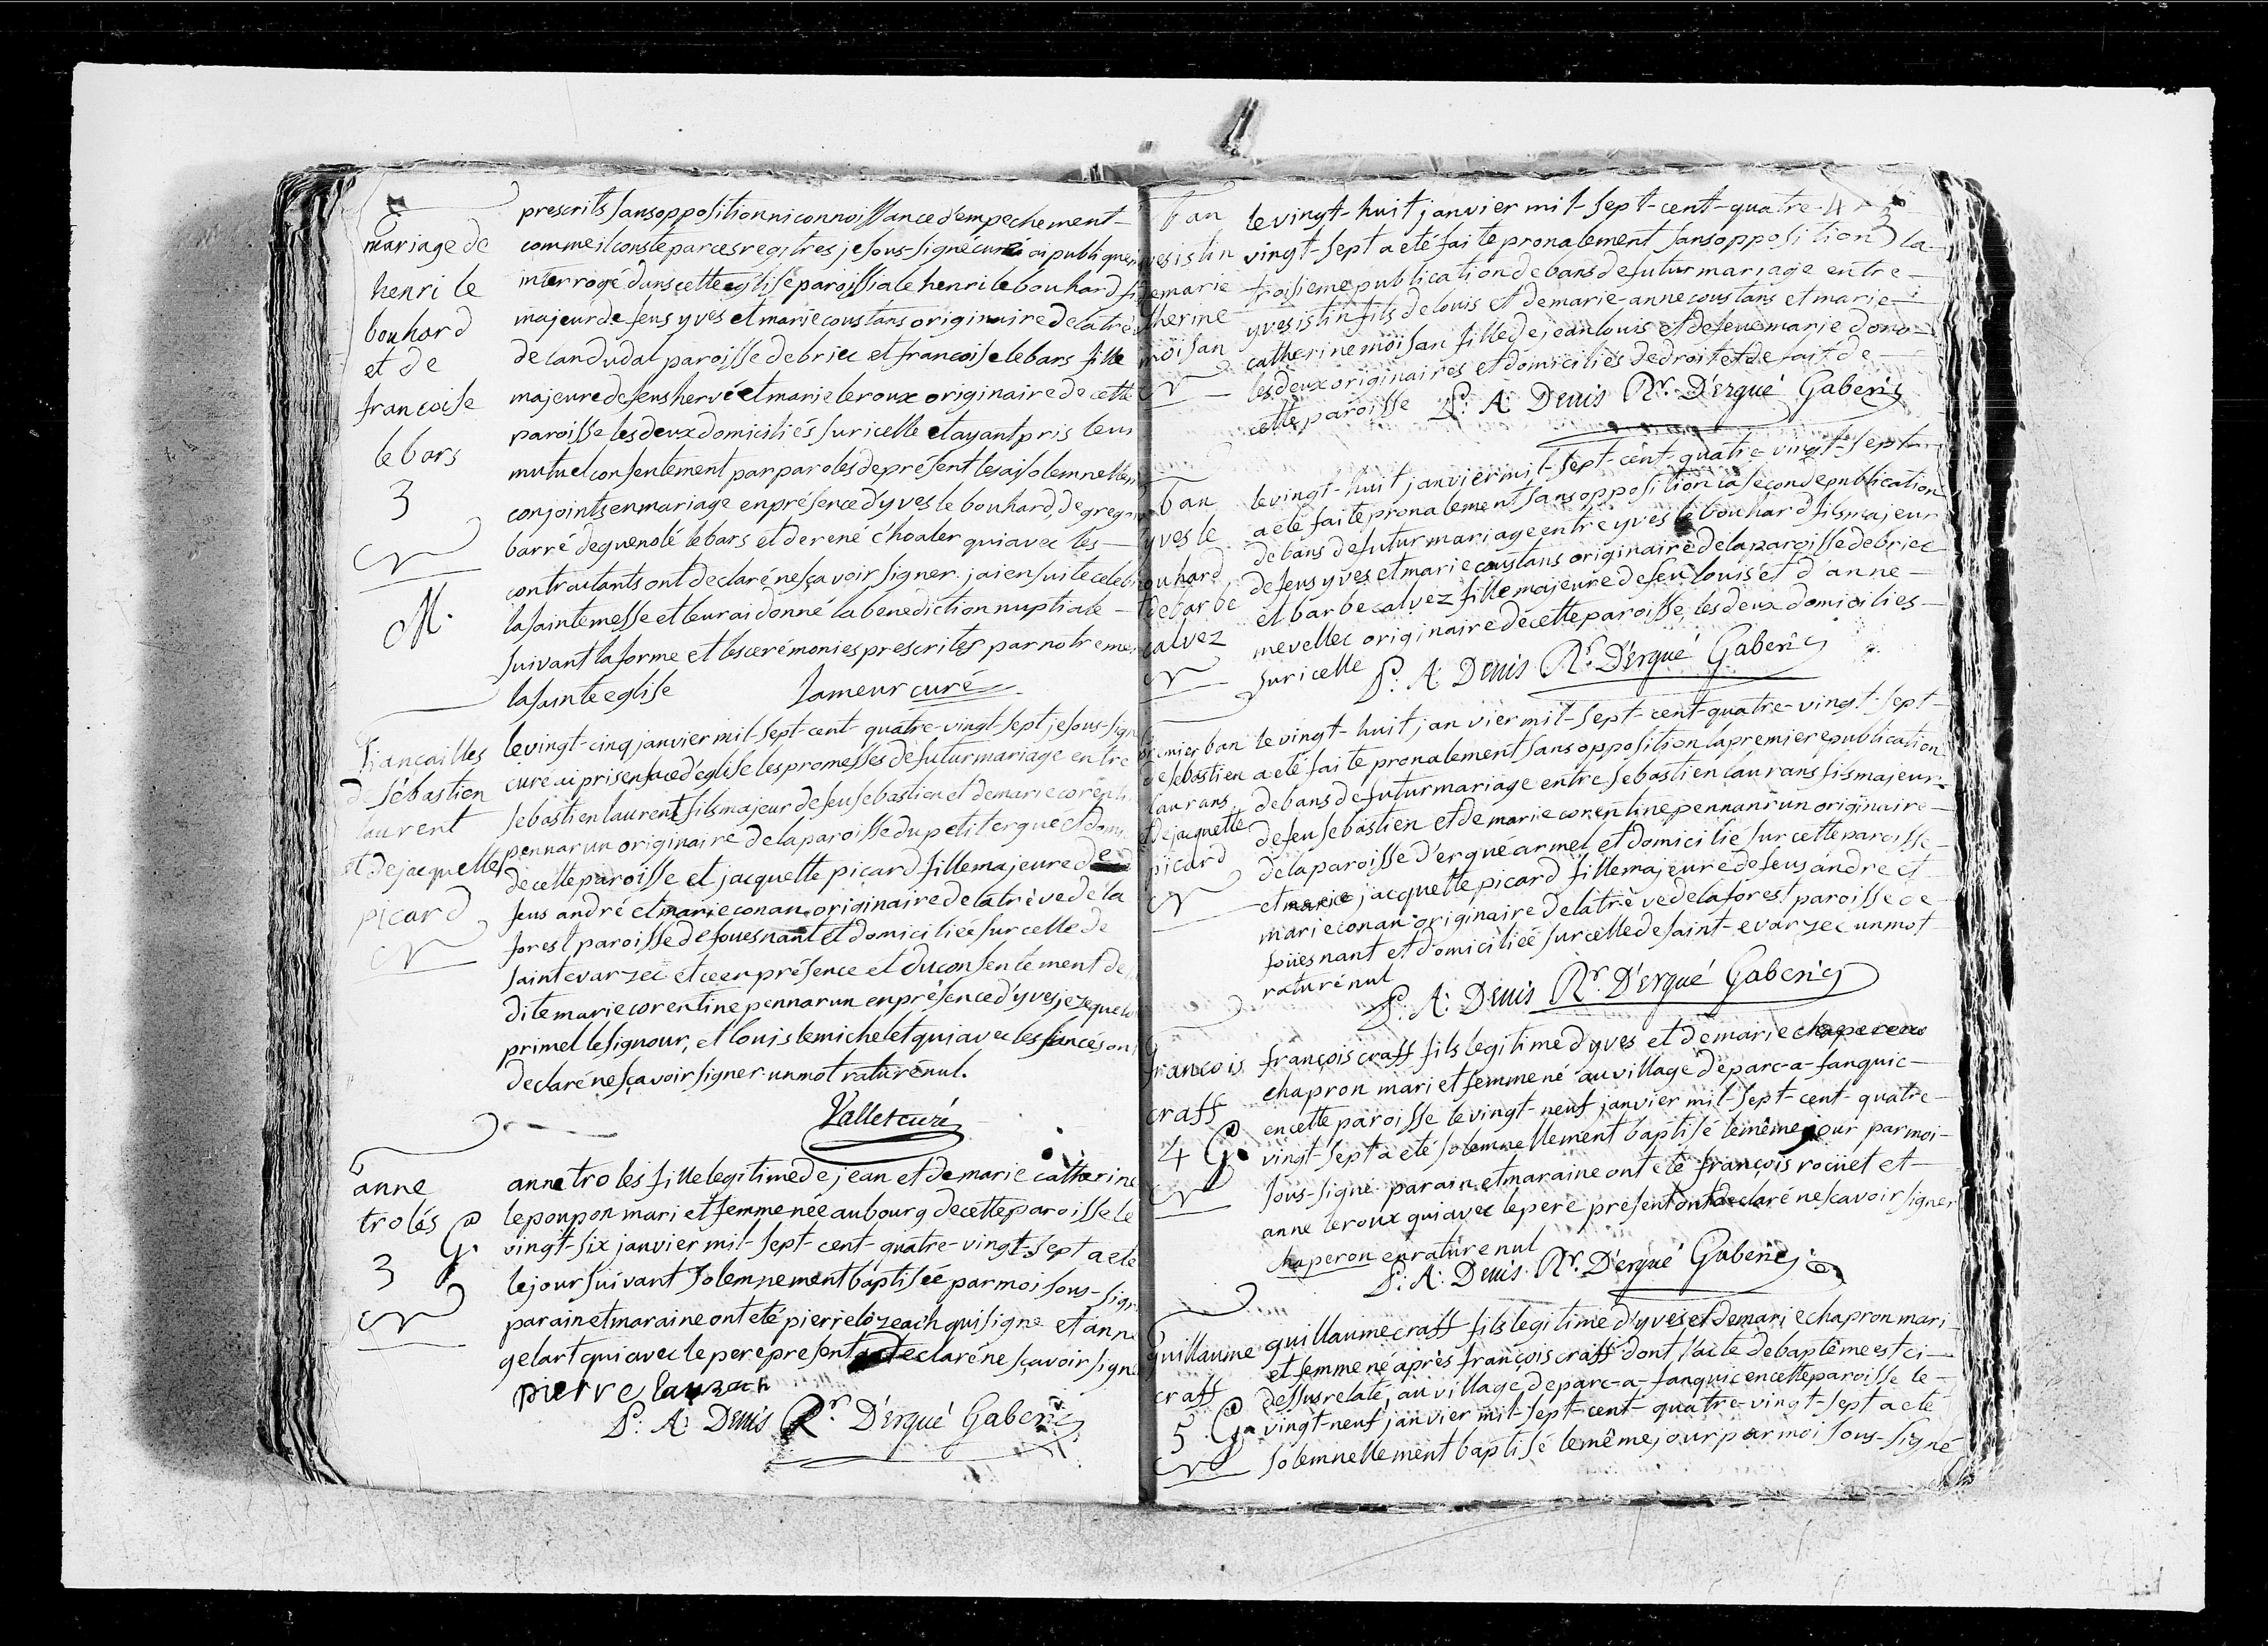 mariage de
henri le
bouhard
et de
francoise
le bars
3
M.
prescrits sans opposition ni connoissance d'empechement
comme il conste par ces regitres je sous-signé curé ai publiquem
interrogé dans cette eglise paroissiale henri le bouhard fi
majeur de feus yves et marie coustans originaire de la trè
de landudal paroisse de briec et francoise le bars fille
majeure de feus hervé et marie le roux originaire de cette
paroisse les deux domiciliés sur icelle et ayant pris leur
mutuel consentement par paroles de présent les ai solemnellem
conjoints en mariage en présence d'yves le bouhard, de gregoi
barré de guenolé le bars et de rené c'hoaler qui avec les
contractants ont declaré ne sçavoir signer. j'ai ensuite celebr
la sainte messe et leur ai donné la benediction nuptiale
suivant la forme et les cerémonies prescrites par notre mer
la sainte eglise lameur curé
fiancailles
de sébastien
laurent
et de jacquette
picard
le vingt-cinq janvier mil-sept-cent-quatre-vingt-sept je sous-sign
curé ai pris en face d'eglise les promesses de futur mariage entre
sebastien laurent fils majeur de feu sebastien et de marie corenti
pennarun originaire de la paroisse du petit ergue et domi
de cette paroisse et jacquette picard fille majeure de
feus andré et marie conan originaire de la trève de la
forest paroisse de fouesnant et domiciliée sur celle de
saint evarzec et ce en présence et du consentement de
dite marie corentine pennarun en présence d'yves jezequel
primel le signour, et louis le michel et qui avec les fiancés on
declaré ne sçavoir signer un mot raturé nul.
Vallet curé
anne
trolés
3 G.
anne trolés fille legitime de jean et de marie catherine
le poupon mari et femme née au bourg de cette paroisse le
vingt-six janvier mil-sept-cent-quatre-vingt-sept a eté
le jour suivant solemnement baptisée par moi sous-sign
parain et maraine ont eté pierre lozeac'h qui signe et anne
gelart qui avec le pere présent ont declaré ne sçavoir signe
pierre lauzach
P. A. Denis Rr. D'ergué Gaberic
ban
yves istin
de marie
therine
moisan
le vingt-huit janvier mil-sept-cent-quatre- 4 3
vingt-sept a eté faite pronalement sans opposition la
troisieme publication de bans de futur mariage entre
yves istin fils de louis et de marie-anne coustans et marie
catherine moisan fille de jean louis et de feue marie dono
les deux originaires et domiciliés de droit et de fait de
cette paroisse P. A. Denis Rr. D'ergué Gaberic
ban
yves le
ouhard
de barbe
calvez
le vingt-huit janvier mil-sept-cent-quatre-vingt-sept
a eté faite pronalement sans opposition la seconde publication
de bans de futur mariage entre yves le bouhard fils majeur
de feus yves et marie coustans originaire de la paroisse de briec
et barbe calvez fille majeure de feu louis et d'anne
nevellec originaire de cette paroisse, les deux domicilies
sur icelle P. A. Denis Rr. D'ergué Gaberic
premier ban
de sebastien
laurans
et de jacquette
picard
le vingt-huit janvier mil-sept-cent-quatre-vingt-sept
a eté faite pronalement sans opposition la premiere publication
de bans de futur mariage entre sebastien laurans fils majeur
de feu sebastien et de marie corentine pennanrun originaire
de la paroisse d'ergué armel et domicilié sur cette paroisse
et marie jacquette picard fille majeure de feus andre et
marie conan originaire de la trève de la forest paroisse de
foüesnant et domiciliée sur celle de saint-evarzec un mot
raturé nul
P. A. Denis Rr. D'ergué Gaberic
françois
craff
4 G.
françois craff fils legitime d'yves et de marie chaperon
chapron mari et femme né au village de parc-a-fanquic
en cette paroisse le vingt-neuf janvier mil-sept-cent-quatre
vingt-sept a eté solemnellement baptisé le même jour par moi
sous-signé parain et maraine ont eté françois roüet et
anne le roux qui avec le pere present ont declaré ne scavoir signer
chaperon en rature nul
P. A. Denis Rr. D'ergué Gaberic
guillaume
craff
5 G.
guillaume craff fils legitime d'yves et de marie chapron mari
et femme né après françois craff dont l'acte de baptême est ci
dessus relaté, au village de parc-a-fanquic en cette paroisse le
vingt-neuf janvier mil-sept-cent-quatre-vingt-sept a eté
solemnellement baptisé le même jour par moi sous-signé